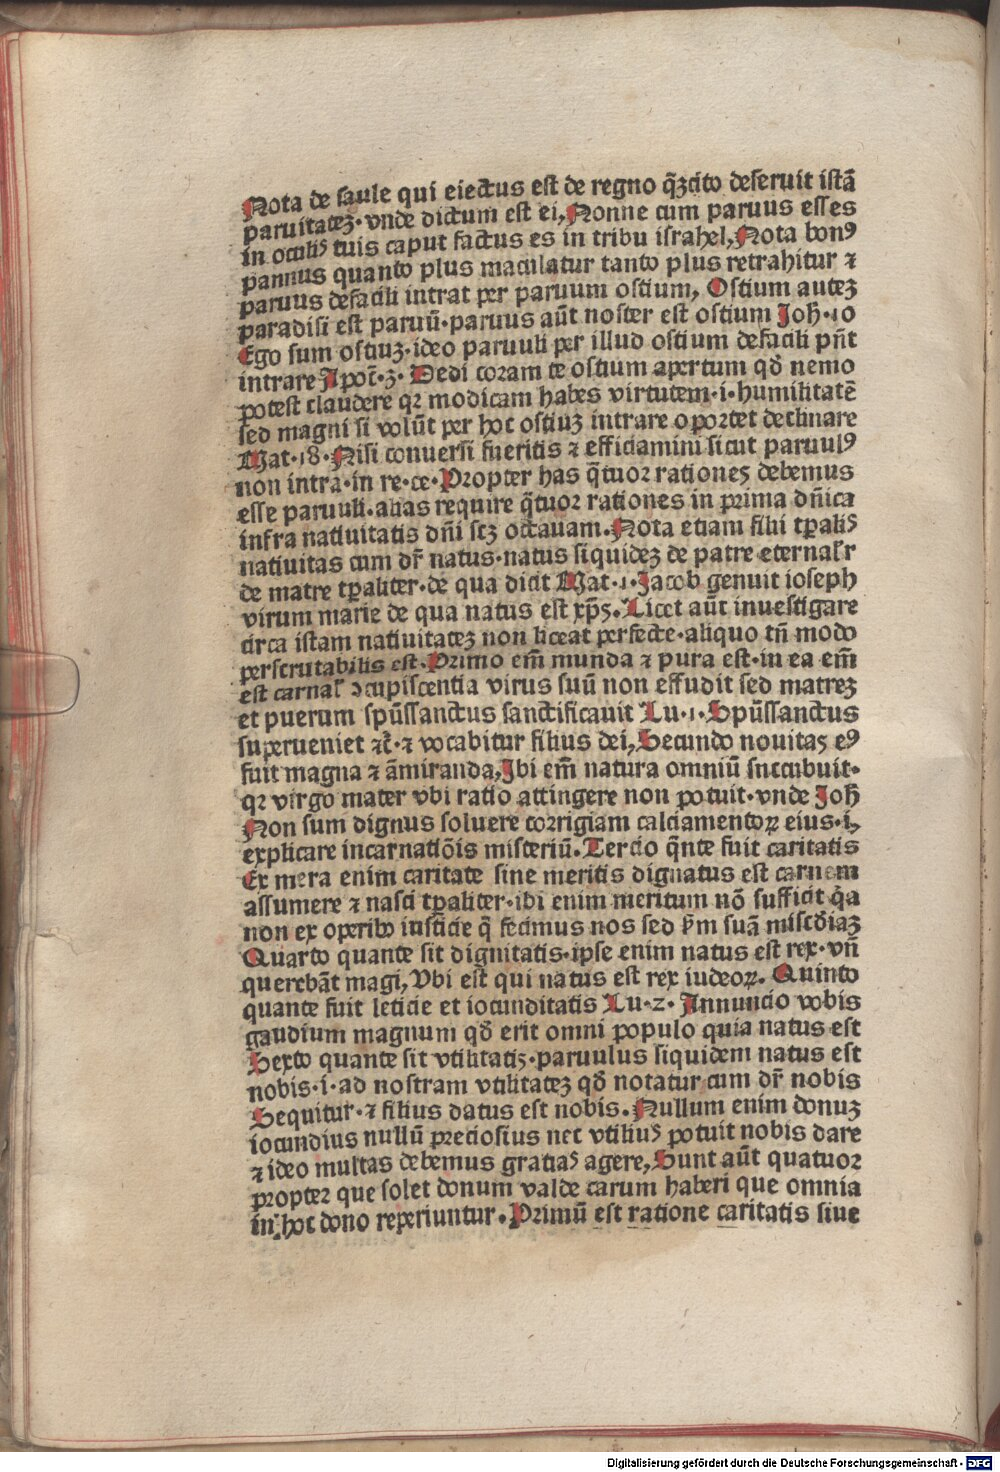 Nota de saule qui eiectus est de regno q̃ꝫcito deseruit istã
paruitateꝫ·vnde dictum est ei, Nonne cum paruus esses
in oculiꝰ tuis caput factus es in tribu israhel, Nota bonꝰ
pannus quanto plus maculatur tanto plus retrahitur ⁊
paruus defacili intrat per paruum ostium, Ostium auteꝫ
paradisi est paruũ·paruus aũt noster est ostium Joh̃·10
Ego sum ostiuꝫ·ideo paruuli per illud ostium defacili pñt
intrare Apoc̃·3· Dedi coram te ostium apertum qð nemo
potest claudere qꝛ modicam habes virtutem·i·humilitatẽ
sed magni si volũt per hoc ostiuꝫ intrare oportet declinare
Mat·18·Nisi conuersi fueritis ⁊ efficiamini sicut paruulꝰ
non intra·in re·ce·Propter has q̃tuor rationeꝫ debemus
esse paruuli·alias require q̃tuor rationes in prima dñica
infra natiuitatis dñi scꝫ octauam·Nota etiam filii tꝑaliꝰ
natiuitas cum dr̃ natus·natus siquideꝫ de patre eternal'r
de matre tꝑaliter·de qua dicit Mat·1·Jacob genuit ioseph
virum marie de qua natus est xp̃s. Licet aũt inuestigare
circa istam natiuitateꝫ non liceat perfecte·aliquo tñ modo
perscrutabilis est·Primo em̃ munda ⁊ pura est·in ea em̃
est carnal' ↄcupiscentia virus suũ non effudit sed matreꝫ
et puerum spũssanctus sanctificauit Lu·1·Spũssanctus
superueniet ⁊c̃·⁊ vocabitur filius dei, Secundo nouitas eꝰ
fuit magna ⁊ ãmiranda, Ibi em̃ natura omniũ succubuit·
qꝛ virgo mater vbi ratio attingere non potuit·vnde Joh̃
Non sum dignus soluere corrigiam calciamentoꝝ eius·i,
explicare incarnatiõis misteriũ. Tercio q̃nte fuit caritatis
Ex mera enim caritate sine meritis dignatus est carnem
assumere ⁊ nasci tꝑaliter·ibi enim meritum nõ sufficit q̃a
non ex operibꝰ iusticie q̃ fecimus nos sed ẜm suã misc̃diaꝫ
Quarto quante sit dignitatis·ipse enim natus est rex·vñ
querebãt magi, Vbi est qui natus est rex iudeoꝝ. Quinto
quante fuit leticie et iocunditatis Lu·2· Annuncio vobis
gaudium magnum qð erit omni populo quia natus est
Sexto quante sit vtilitatis·paruulus siquidem natus est
nobis·i·ad nostram vtilitateꝫ qð notatur cum dr̃ nobis
Sequitur·⁊ filius datus est nobis. Nullum enim donuꝫ
iocundius nullũ preciosius nec vtiliuꝰ potuit nobis dare
⁊ ideo multas debemus gratiaꝰ agere, Sunt aũt quatuor
propter que solet donum valde carum haberi que omnia
in hoc dono reperiuntur. Primũ est ratione caritatis siue
Digitalisierung gefördert durch die Deutsche Forschungsgemeinschaft - DFG